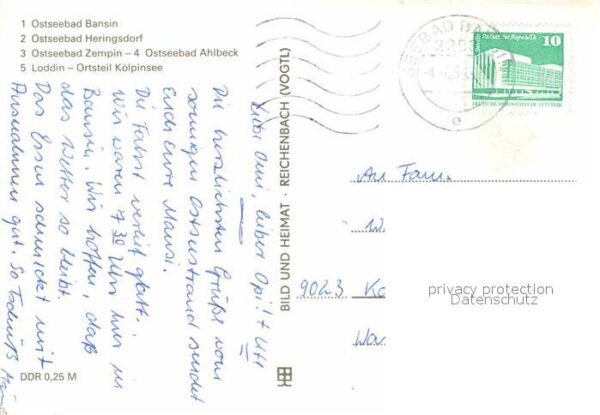 1 Ostseebad Bansin
2 Ostseebad Heringsdorf
3 Ostseebad Zempin – 4 Ostseebad Ahlbeck
5 Loddin – Ortsteil Kölpinsee
Liebe Omi, lieber Opi! + Ute
Die herzlichsten Grüße vom
sonnigen Ostseestrand sendet
Euch Eure Mausi.
Die Fahrt verlief glatt.
Wir waren 7 30 Uhr hier in
Bansin. Wir hoffen, daß
das Wetter so bleibt.
Das Essen schmeckt mit
Ausnahmen gut. So
DDR 0,25 M
BILD UND HEIMAT · REICHENBACH (VOGTL)
SEEBAD BA
Berlin Palast der Republik
10
DEUTSCHE DEMOKRATISCHE REPUBLIK
An Fam.
9023 Ka
privacy protection
Datenschutz